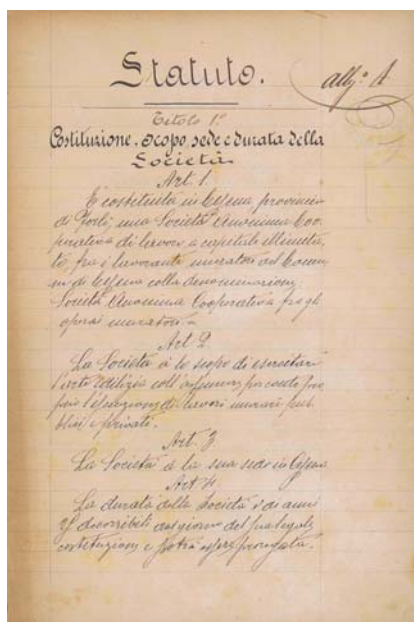 Statuto.
Alleg.º A
Titolo 1º
Costituzione, scopo, sede e durata della
Società
Art 1.
È costituita in Cesena, provincia
di Forlì, una Società Anonima Coo-
perativa di lavoro a capitale illimita-
to, fra i lavoranti muratori del Comu-
ne di Cesena colla denominazione:
Società Anonima Cooperativa fra gli
operai muratori.=
Art 2
La Società à lo scopo di esercitare
l'arte edilizia coll'assumere per conto pro-
prio l'esecuzione di lavori murari pub-
blici e privati.
Art. 3
La Società à la sua sede in Cesena
Art 4.
La durata della Società è di anni
decorribili dal giorno del sua legale
costituzione e potrà essere prorogata.